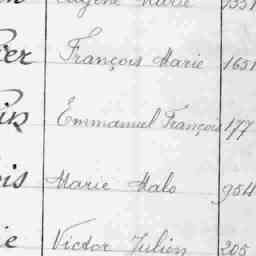 Eugène Marie 1331
François Marie 1651
Emmanuel François 177
ois Marie Malo 954
ie Victor Julien 205